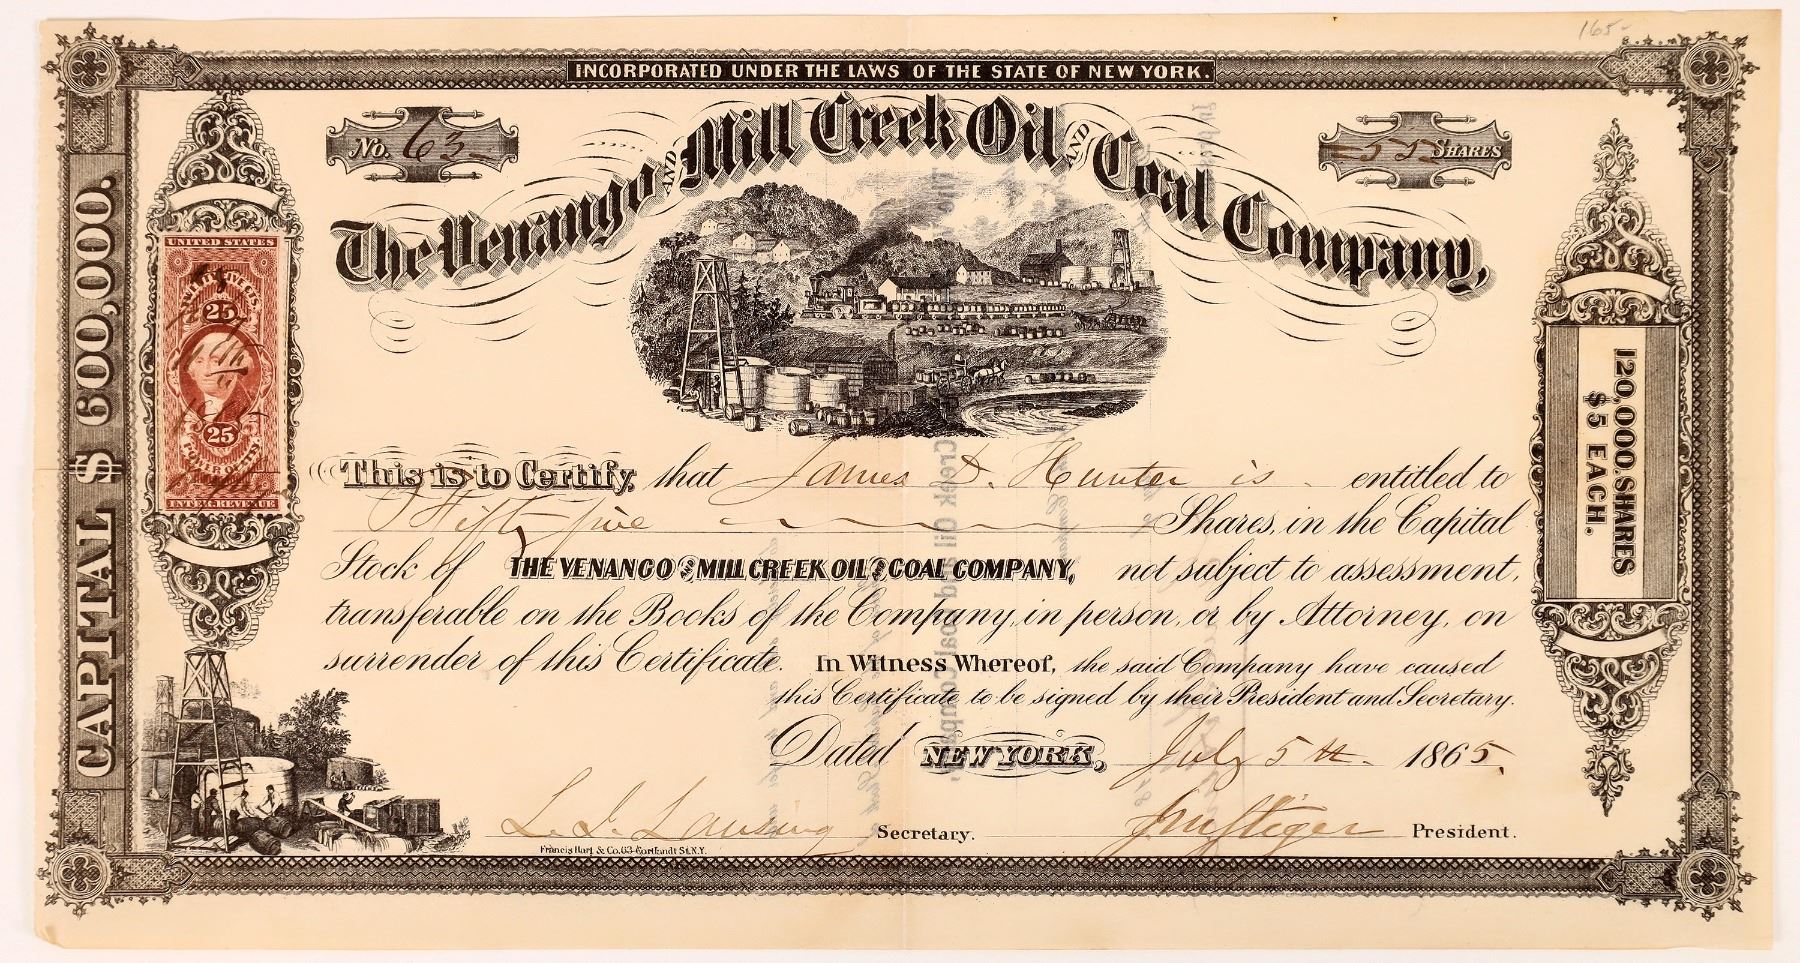 165-
INCORPORATED UNDER THE LAWS OF THE STATE OF NEW YORK.
No. 63
55 SHARES
The Venango AND Mill Creek Oil AND Coal Company,
CAPITAL $ 600,000.
UNITED STATES
25
25
INTER. REVENUE
120,000. SHARES
$5 EACH.
This is to Certify, that James D. Hunter is entitled to
Fifty five Shares, in the Capital
Stock of THE VENANGO AND MILL CREEK OIL AND COAL COMPANY, not subject to assessment,
transferable on the Books of the Company, in person, or by Attorney, on
surrender of this Certificate. In Witness Whereof, the said Company have caused
this Certificate to be signed by their President and Secretary.
Dated NEW YORK, July 5th 1865.
L. J. Lansing Secretary. President.
Francis Hart & Co. 63 Cortlandt St. N.Y.